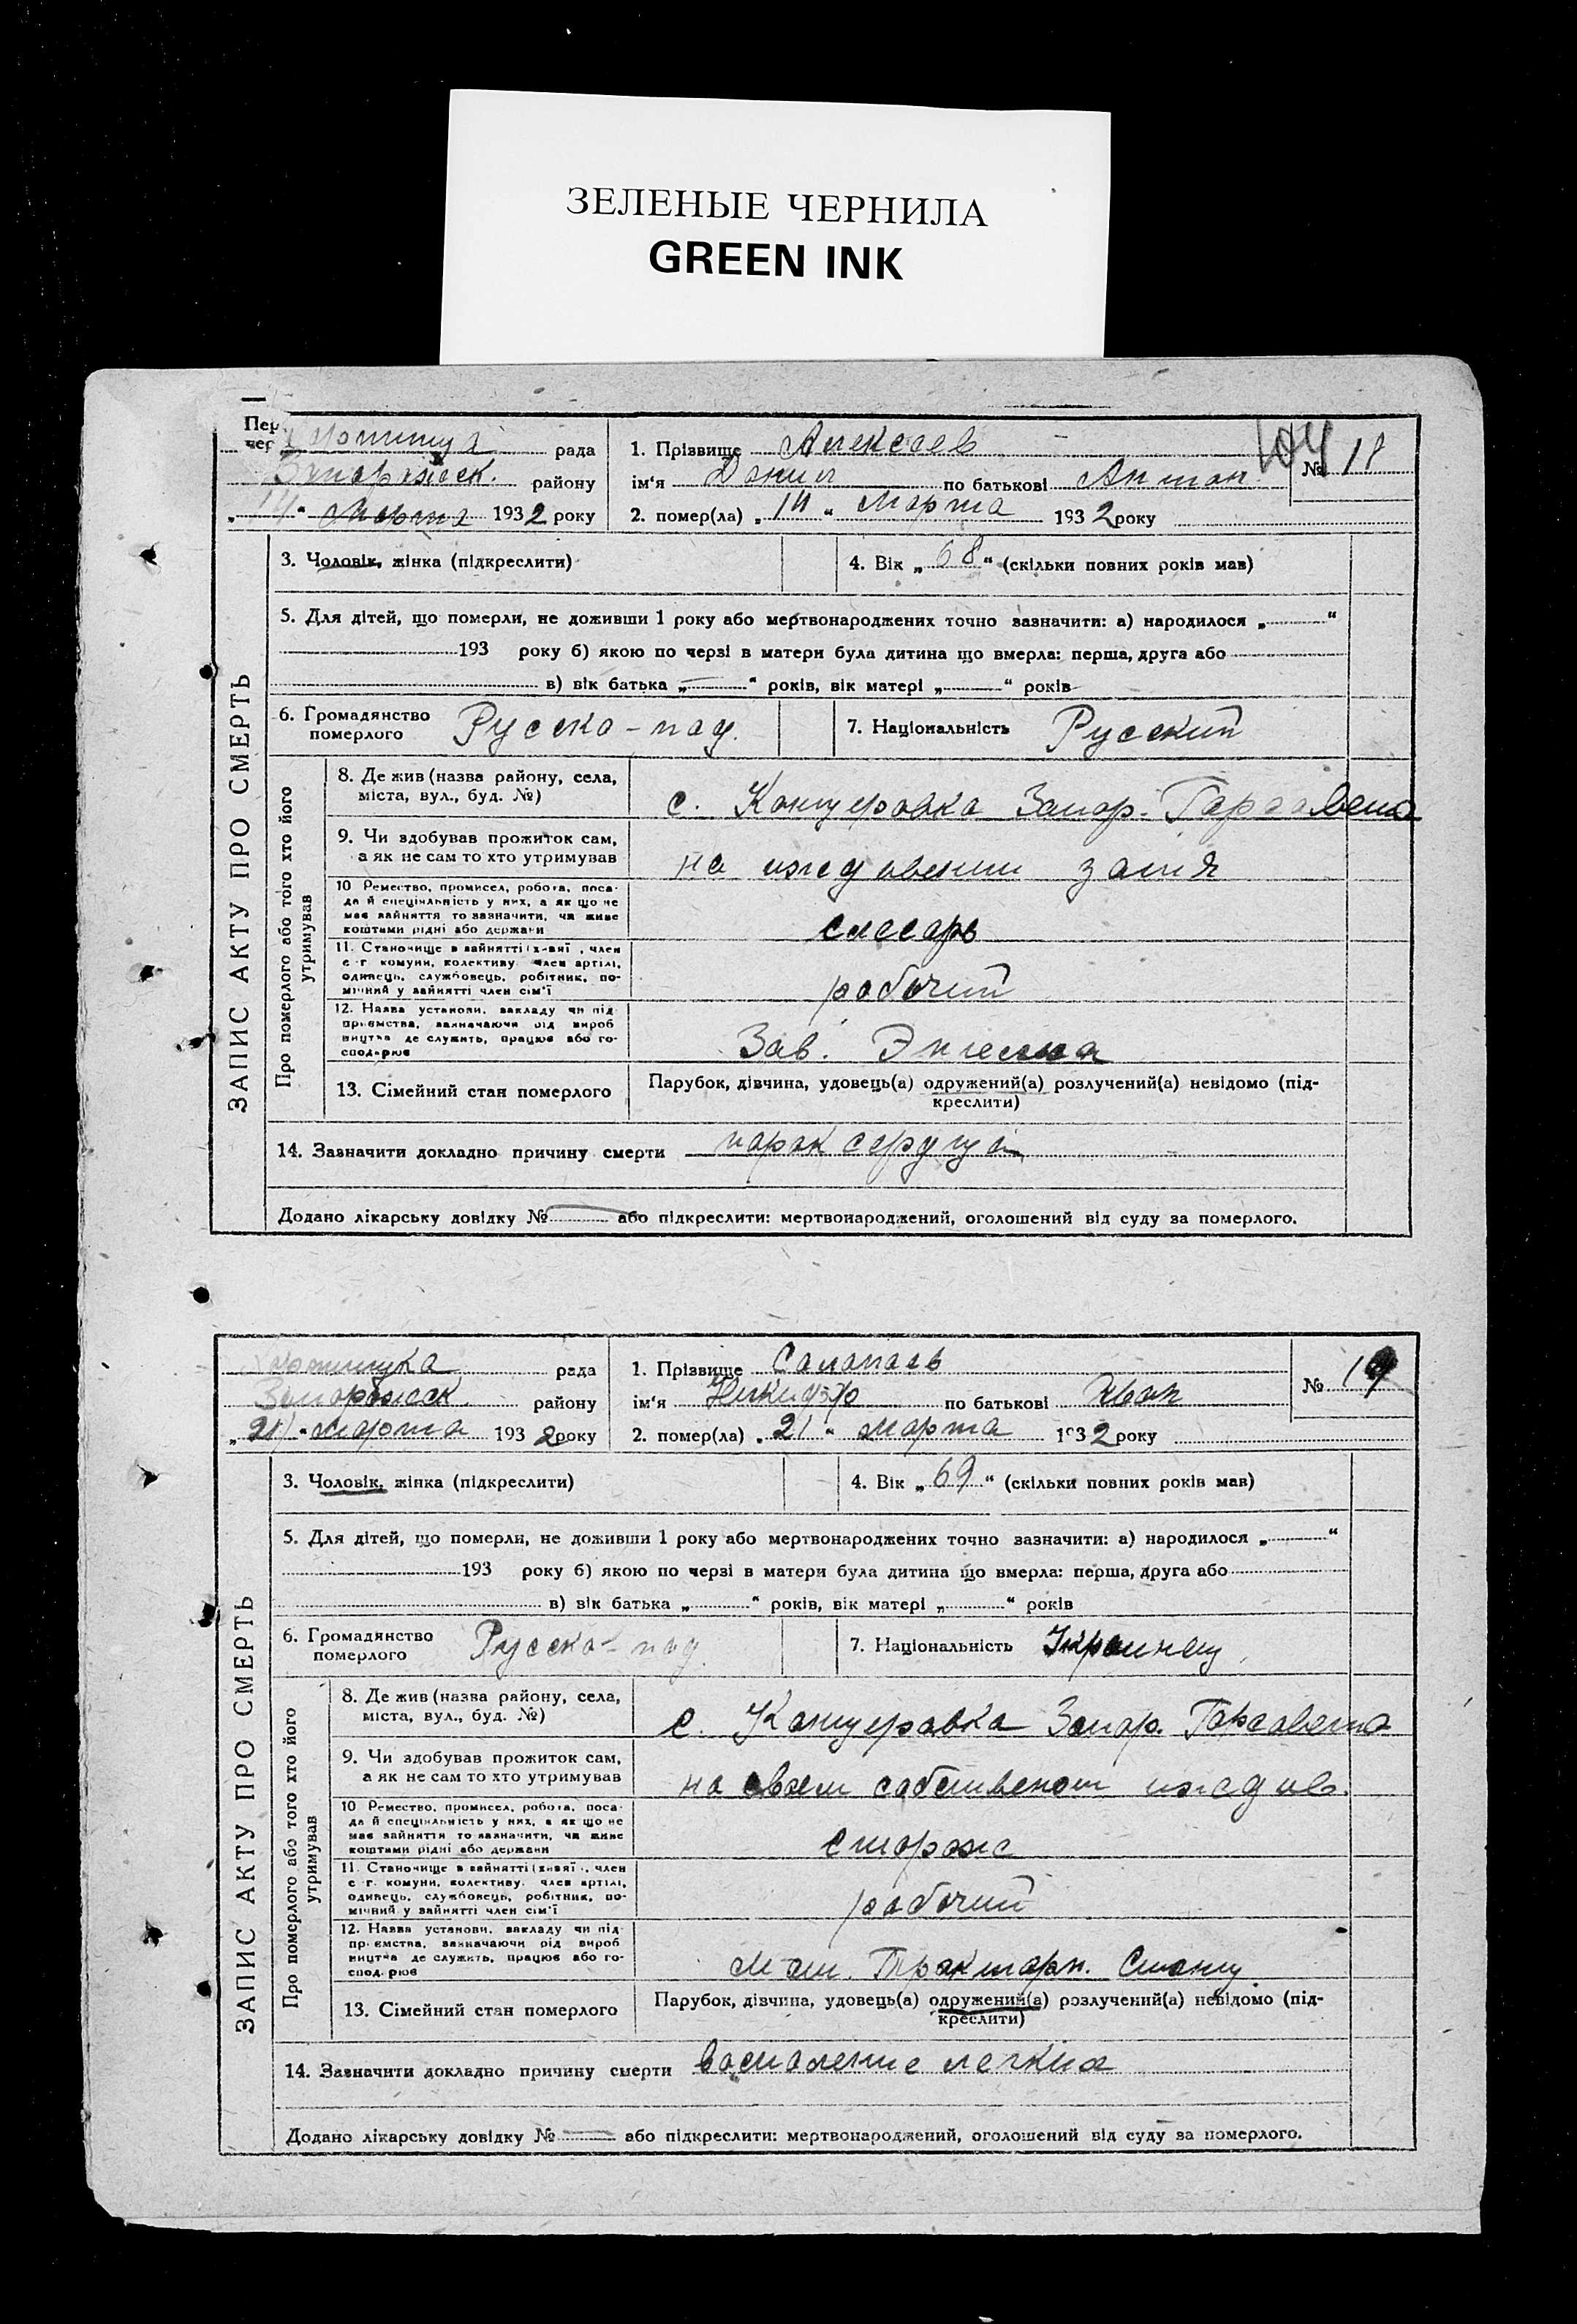 ЗЕЛЕНЫЕ ЧЕРНИЛА
GREEN INK
Пер
чер
рада
Запорожск. району
"14" Марта 1932 року
1. Прізвище Алексеев
ім'я Данил по батькові Антон.
2. помер(ла) "14" Марта 1932 року
104
№ 18
ЗАПИС АКТУ ПРО СМЕРТЬ
3. Чоловік, жінка (підкреслити)
4. Вік „68" (скільки повних років мав)
5. Для дітей, що померли, не доживши 1 року або мертвонароджених точно зазначити: а) народилося „ "
193 року б) якою по черзі в матери була дитина що вмерла: перша, друга або
в) вік батька „ " років, вік матері „ " років
6. Громадянство
померлого
Русско-под.
7. Національність Русский
Про померлого або того хто його
утримував
8. Де жив (назва району, села,
міста, вул., буд. №)
с. Канцеровка Запор. Горсовета
9. Чи здобував прожиток сам,
а як не сам то хто утримував
на иждивении
10 Ремество, промисел, робота, поса-
да й спеціяльність у них, а як що не
має зайняття то зазначити, чи живе
коштами рідні або держави
слесарь
11. Становище в зайнятті (хазяї, член
с-г. комуни, колективу член артілі,
одинець, службовець, робітник, по-
мічний у зайнятті член сім'ї
рабочий
12. Назва установи, закладу чи під-
приємства, зазначаючи від вироб
ництва де служить, працює або го-
сподарює
Зав. Энгельса
13. Сімейний стан померлого
Парубок, дівчина, удовець(а) одружений(а) розлучений(а) невідомо (під-
креслити)
14. Зазначити докладно причину смерти порок сердца
Додано лікарську довідку № або підкреслити: мертвонароджений, оголошений від суду за померлого.
рада
Запорожск. району
"21" Марта 1932 року
1. Прізвище
ім'я Никифор по батькові Иван
2. помер(ла) "21" Марта 1932 року
№ 19
ЗАПИС АКТУ ПРО СМЕРТЬ
3. Чоловік, жінка (підкреслити)
4. Вік „69" (скільки повних років мав)
5. Для дітей, що померли, не доживши 1 року або мертвонароджених точно зазначити: а) народилося „ "
193 року б) якою по черзі в матери була дитина що вмерла: перша, друга або
в) вік батька „ " років, вік матері „ " років
6. Громадянство
померлого
Русско-под.
7. Національність Украинец
Про померлого або того хто його
утримував
8. Де жив (назва району, села,
міста, вул., буд. №)
с. Канцеровка Запор. Горсовета
9. Чи здобував прожиток сам,
а як не сам то хто утримував
на своем собственом иждив.
10 Ремество, промисел, робота, поса-
да й спеціяльність у них, а як що не
має зайняття то зазначити, чи живе
коштами рідні або держави
сторож
11. Становище в зайнятті (хазяї, член
с-г. комуни, колективу, член артілі,
одинець, службовець, робітник, по-
мічний у зайнятті член сім'ї
рабочий
12. Назва установи, закладу чи під-
приємства, зазначаючи від вироб
ництва де служить, працює або го-
сподарює
Маш. Тракторн. Станц.
13. Сімейний стан померлого
Парубок, дівчина, удовець(а) одружений(а) розлучений(а) невідомо (під-
креслити)
14. Зазначити докладно причину смерти воспаление легких
Додано лікарську довідку № або підкреслити: мертвонароджений, оголошений від суду за померлого.